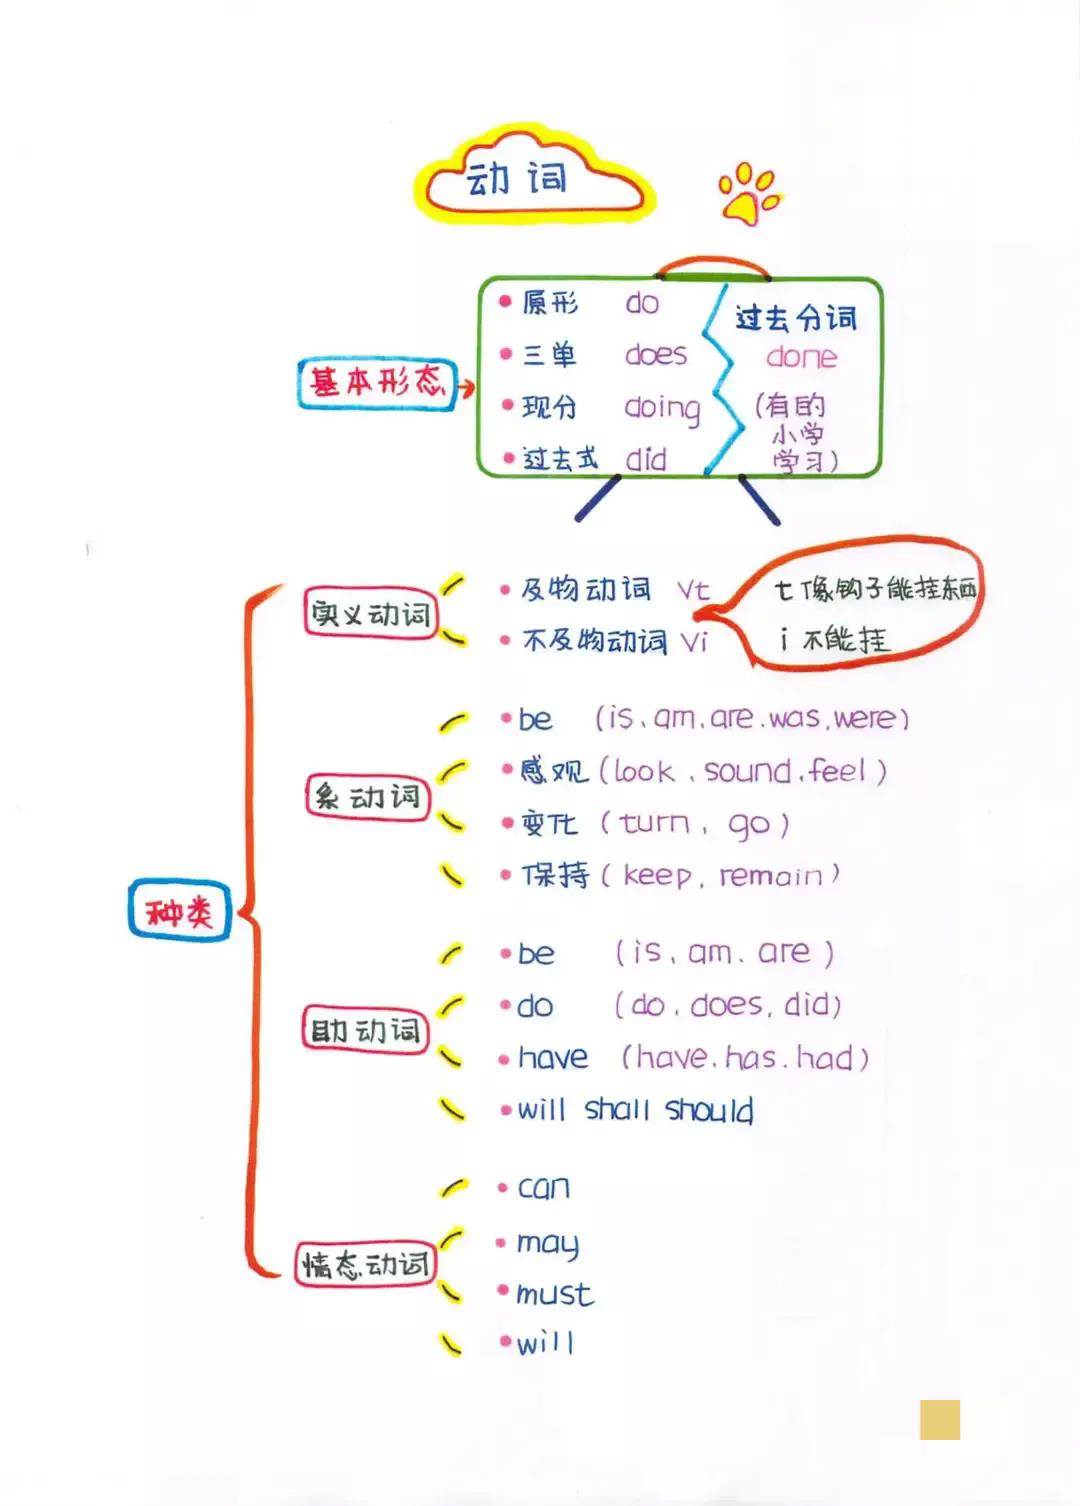 动词
基本形态
原形 do
三单 does
现分 doing
过去式 did
过去分词
done
(有的
小学
学习)
种类
实义动词
及物动词 Vt
不及物动词 Vi
t像钩子能挂东西
i不能挂
系动词
be (is、am、are.was,were)
感观(look、sound、feel)
变化(turn, go)
保持(keep, remain)
助动词
be (is、am、are)
do (do、does, did)
have (have.has.had)
will shall should
情态动词
can
may
must
will